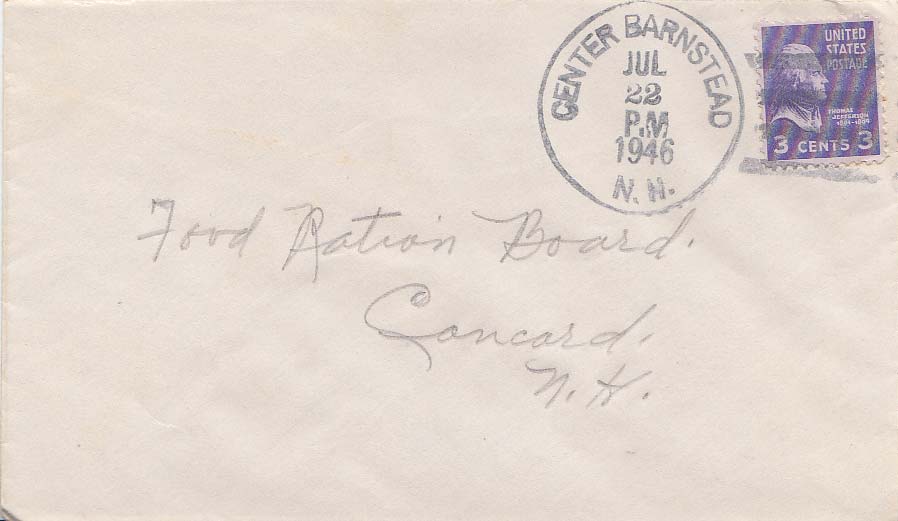 CENTER BARNSTEAD
JUL
22
P.M
1946
N. H.
UNITED
STATES
POSTAGE
THOMAS
JEFFERSON
1801-1809
3 CENTS 3
Food Ration Board.
Concord.
N. H.